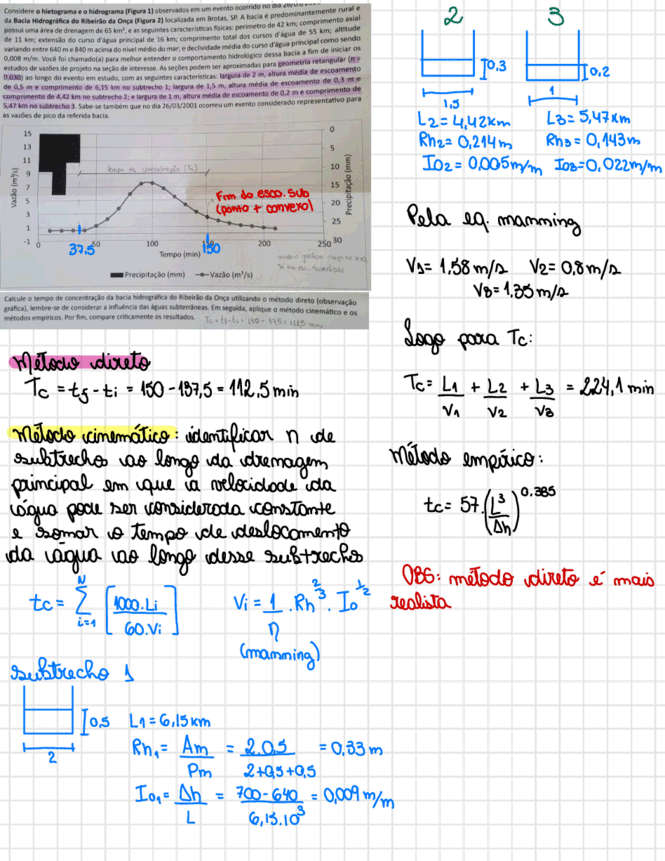 Considere o hietograma e o hidrograma (Figura 1) observados em um evento ocorrido no dia
da Bacia Hidrográfica do Ribeirão da Onça (Figura 2) localizada em Brotas, SP. A bacia é predominantemente rural e
possui uma área de drenagem de 65 km², e as seguintes características físicas: perímetro de 42 km; comprimento axial
de 11 km; extensão do curso d'água principal de 16 km; comprimento total dos cursos d'água de 55 km; altitude
variando entre 640 m e 840 m acima do nível médio do mar; e declividade média do curso d'água principal como sendo
0,008 m/m. Você foi chamado(a) para melhor entender o comportamento hidrológico dessa bacia a fim de iniciar os
estudos de vazões de projeto na seção de interesse. As seções podem ser aproximadas para geometria retangular (n =
0,030) ao longo do evento em estudo, com as seguintes características: largura de 2 m, altura média de escoamento
de 0,5 m e comprimento de 6,15 km no subtrecho 1; largura de 1,5 m, altura média de escoamento de 0,3 m e
comprimento de 4,42 km no subtrecho 2; e largura de 1 m, altura média de escoamento de 0,2 m e comprimento de
5,47 km no subtrecho 3. Sabe-se também que no dia 26/03/2001 ocorreu um evento considerado representativo para
as vazões de pico da referida bacia.
15 13 11 9 7 5 3 1 -1
Vazão (m³/s)
tempo de concentração (tc)
Fim do esco. sub
(ponto + convexo)
0 5 10 15 20 25 30
Precipitação (mm)
0 50 100 150 250
37,5
150
Tempo (min)
Precipitação (mm) Vazão (m³/s)
Calcule o tempo de concentração da bacia hidrográfica do Ribeirão da Onça utilizando o método direto (observação
gráfica), lembre-se de considerar a influência das águas subterrâneas. Em seguida, aplique o método cinemático e os
métodos empíricos. Por fim, compare criticamente os resultados.
Método direto
Tc = tf - ti = 150 - 137,5 = 112,5 min
Método cinemático: identificar n de
subtrechos ao longo da drenagem
principal em que a velocidade da
água pode ser considerada constante
e somar o tempo de deslocamento
da água ao longo desse subtrechos
tc = N Σ i=1 [1000.Li / 60.Vi] Vi = 1/n . Rh^2/3 . Io^1/2
(manning)
Subtrecho 1
0,5 L1 = 6,15 km
2
Rh1 = Am/Pm = 2.0,5 / 2+0,5+0,5 = 0,33 m
Io1 = Δh/L = 700-640 / 6,15.10³ = 0,009 m/m
2 3
0.3 0.2
1,5 1
L2 = 4,42 km L3 = 5,47 km
Rh2 = 0,214 m Rh3 = 0,143 m
IO2 = 0,005 m/m IO3 = 0,022 m/m
Pela eq. manning
V1 = 1,58 m/s V2 = 0,8 m/s
V3 = 1,35 m/s
Logo para Tc:
Tc = L1/V1 + L2/V2 + L3/V3 = 224,1 min
Método empírico:
tc = 57.(L³/Δh)^0,385
OBS: método direto é mais
realista